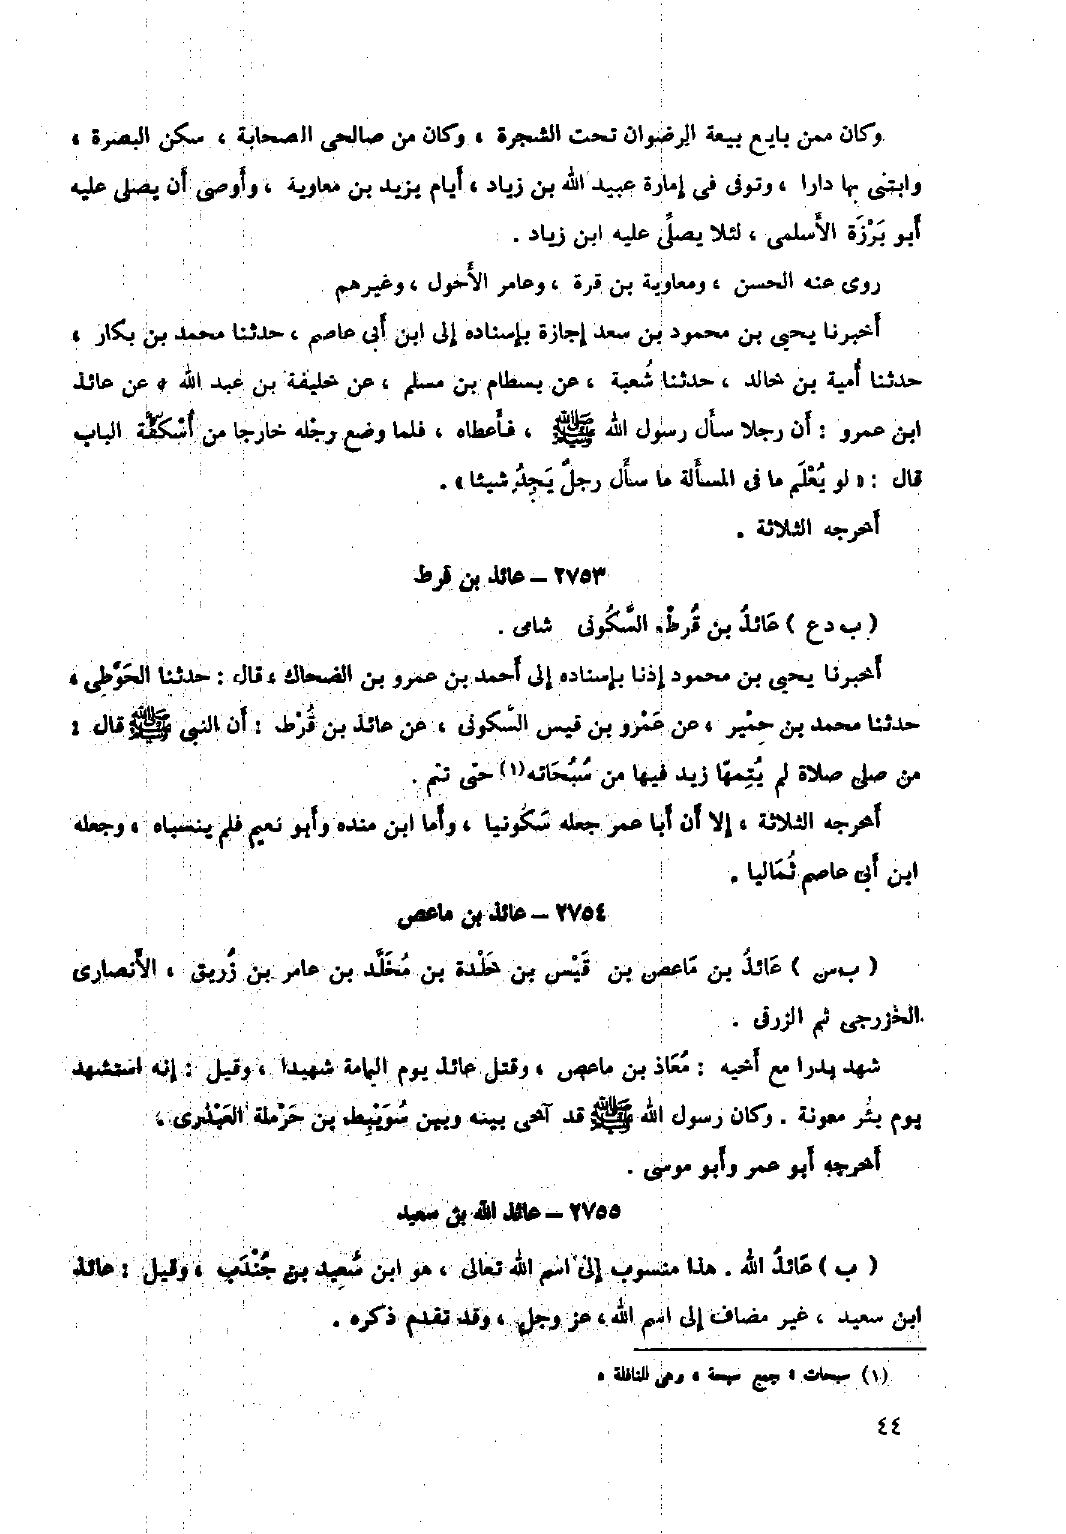 وكان ممن بايع بيعة الرضوان تحت الشجرة ، وكان من صالحى الصحابة ، سكن البصرة ،
وابتنى بها دارا ، وتوفى فى إمارة عبيد الله بن زياد ، أيام يزيد بن معاوية ، وأوصى أن يصلى عليه
أبو بَرْزَة الأسلمى ، لئلا يصلِّى عليه ابن زياد .
روى عنه الحسن ، ومعاوية بن قرة ، وعامر الأحول ، وغيرهم
أخبرنا يحيى بن محمود بن سعد إجازة بإسناده إلى ابن أبى عاصم ، حدثنا محمد بن بكار ،
حدثنا أمية بن خالد ، حدثنا شُعبة ، عن بسطام بن مسلم ، عن خليفة بن عبد الله ، عن عائذ
ابن عمرو : أن رجلا سأل رسول الله ﷺ ، فأعطاه ، فلما وضع رجْله خارجا من أُسْكُفَّة الباب
قال : « لو يُعْلَم ما فى المسألة ما سأل رجلٌ يَجِدُ شيئا » .
أخرجه الثلاثة .
٢٧٥٣ – عائذ بن قرط
( ب د ع ) عَائذُ بن قُرطْ، السَّكُونى شامى .
أخبرنا يحيى بن محمود إذنا بإسناده إلى أحمد بن عمرو بن الضحاك ، قال : حدثنا الحَوْطِى ،
حدثنا محمد بن حِمْير ، عن عَمْرو بن قيس السَّكونى ، عن عائذ بن قُرْط : أن النبى ﷺ قال :
من صلى صلاة لم يُتِمهّا زيد فيها من سُبُحَاته(١) حتى تتم .
أخرجه الثلاثة ، إلا أن أبا عمر جعله سَكُونيا ، وأما ابن منده وأبو نعيم فلم ينسباه ، وجعله
ابن أبى عاصم ثُمَاليا .
٢٧٥٤ – عائذ بن ماعص
( ب س ) عَائذُ بن مَاعص بن قَيْس بن خَلْدة بن مُخَلَّد بن عامر بن زُريق ، الأنصارى
الخزرجى ثم الزرقى .
شهد بدرا مع أخيه : مُعَاذ بن ماعص ، وقتل عائذ يوم اليمامة شهيدا ، وقيل : إنه استشهد
يوم بئر معونة . وكان رسول الله ﷺ قد آخى بينه وبين سُوَيْبِط بن حَرْملة العَبْدَرى .
أخرجه أبو عمر وأبو موسى .
٢٧٥٥ – عائذ الله بن سعيد
( ب ) عَائذُ الله . هذا منسوب إلى اسم الله تعالى ، هو ابن سَعِيد بن جُنْدَب ، وقيل : عائذ
ابن سعيد ، غير مضاف إلى اسم الله، عز وجل ، وقد تقدم ذكره .
(١) سبحات : جمع سبحة ، وهى للنافلة .
٤٤